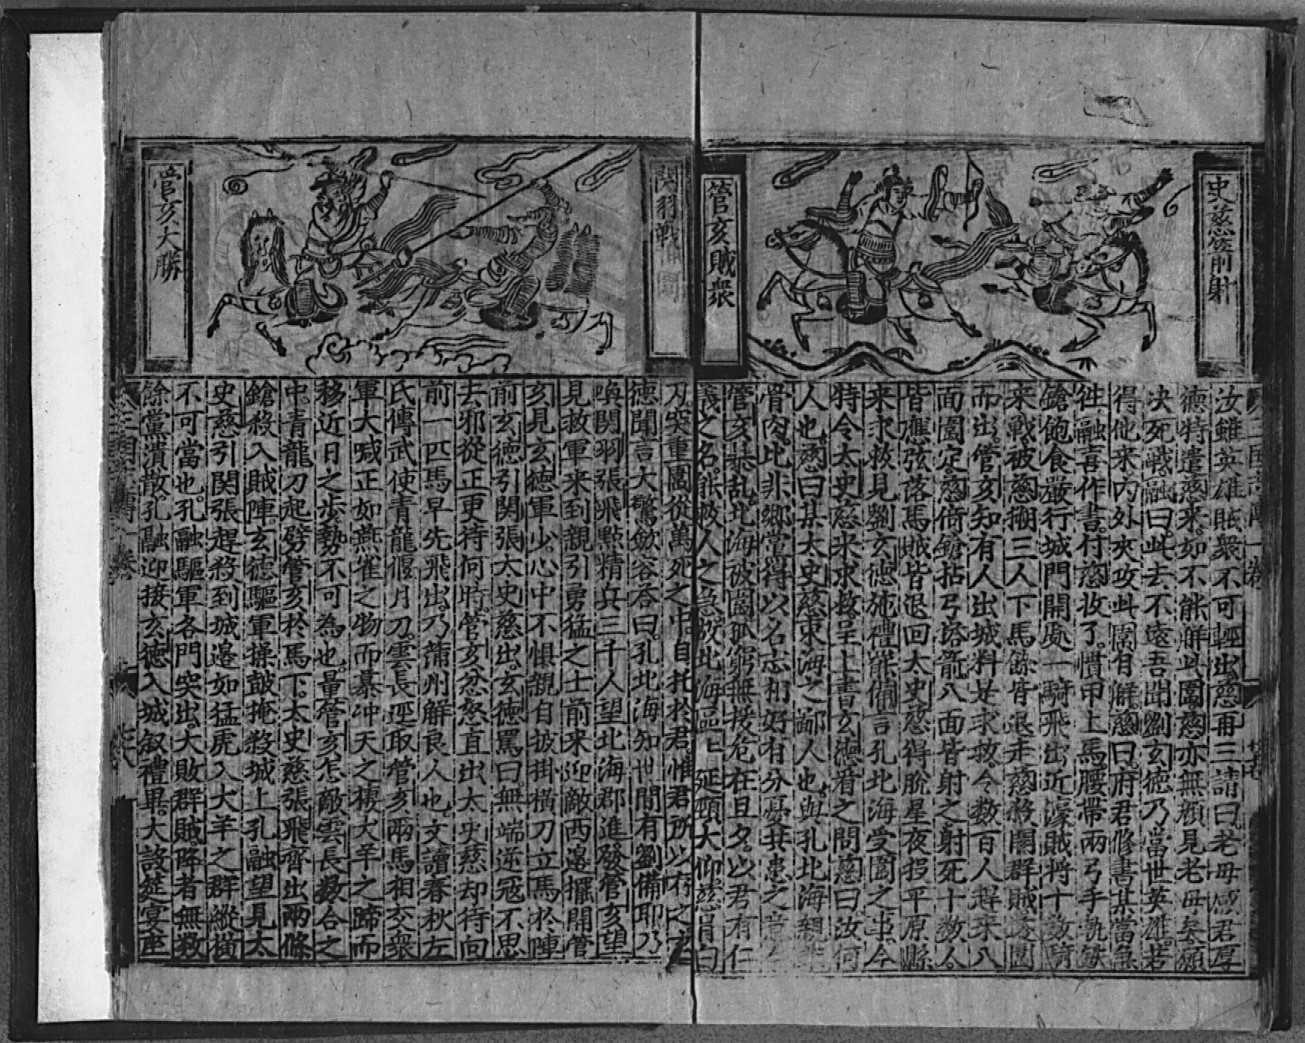 史慈箭射
管亥賊衆
汝雖英雄賊衆不可輕出慈再三請曰老母感君厚
德特遣慈來如不能解此圍慈亦無顏見老母矣願
决死戰融曰此去不遠吾聞劉玄德乃當世英雄若
得他来内外夾攻此圍有解慈曰府君修書某當急
徃融喜作書付慈收了慣甲上馬腰帶兩弓手執鉄
鎗飽食嚴行城門開處一騎飛出近濠賊將十数騎
來戰被慈搠三人下馬餘皆退走慈殺開群賊透圍
而出管亥知有人出城料是求救令数百人趕来八
面圍定慈倚鎗拈弓搭箭八面皆射之射死十数人
皆應弦落馬賊皆退回太史慈得脫星夜投平原縣
来求救見劉玄德施禮罷偹言孔北海受圍之事今
特令太史慈来求救呈上書玄德看之問慈曰汝何
人也慈曰某太史慈東海之鄙人也與孔北海親非
骨肉比非鄉黨得以名志相好有分憂共患之意
管亥暴乱北海被圍孤窮無援危在旦夕以君有仁
義之名能救人之急故北海區區延頸大仰慈冒白
刃突重圍從萬死之中自托於君惟君所以存之玄
德聞言大驚歛容答曰孔北海知世間有劉備耶乃
喚関羽張飛點精兵三千人望北海郡進發管亥望
見救軍来到親引勇猛之士前来迎敵西邊擺開管
亥見玄德軍少心中不惧親自披掛橫刀立馬於陣
前玄德引関張太史慈出玄德罵曰無端逆冦不思
去邪從正更待何時管亥忿怒直出太史慈却待向
前一匹馬早先飛出乃蒲州解良人也文讀春秋左
氏傳武使青龍偃月刀雲長逕取管亥兩馬相交衆
軍大喊正如燕雀之物而慕冲天之棲犬羊之蹄而
移近日之歩勢不可為也量管亥怎敵雲長数合之
中青龍刀起劈管亥於馬下太史慈張飛齊出兩條
鎗殺入賊陣玄德驅軍操鼓掩殺城上孔融望見太
史慈引関張趕殺到城邉如猛虎入犬羊之群縱橫
不可當也孔融驅軍各門突出大敗群賊降者無数
餘黨潰散孔融迎接玄德入城叙禮畢大設筵宴座
関羽戰
管亥大勝